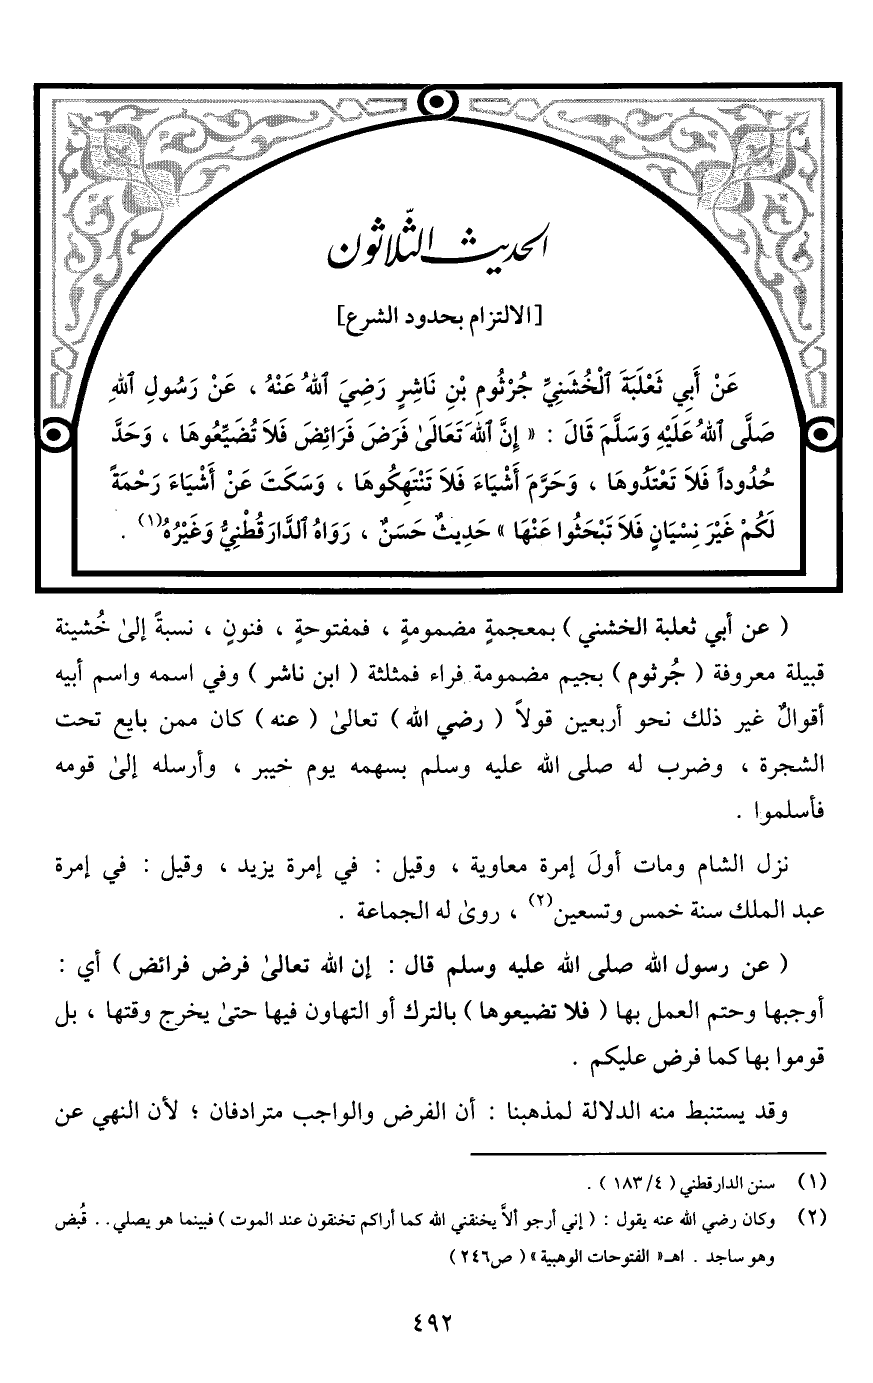 الحديث الثّلاثون
[الالتزام بحدود الشرع]
عَنْ أَبِي ثَعْلَبَةَ ٱلْخُشَنِيِّ جُرْثُومِ بْنِ نَاشِرٍ رَضِيَ ٱللهُ عَنْهُ ، عَنْ رَسُولِ ٱللهِ
صَلَّى ٱللهُ عَلَيْهِ وَسَلَّمَ قَالَ : « إِنَّ ٱللهَ تَعَالَىٰ فَرَضَ فَرَائِضَ فَلاَ تُضَيِّعُوهَا ، وَحَدَّ
حُدُوداً فَلاَ تَعْتَدُوهَا ، وَحَرَّمَ أَشْيَاءَ فَلاَ تَنْتَهِكُوهَا ، وَسَكَتَ عَنْ أَشْيَاءَ رَحْمَةً
لَكُمْ غَيْرَ نِسْيَانٍ فَلاَ تَبْحَثُوا عَنْهَا » حَدِيثٌ حَسَنٌ ، رَوَاهُ ٱلدَّارَقُطْنِيُّ وَغَيْرُهُ(١) .
( عن أبي ثعلبة الخشني ) بمعجمةٍ مضمومةٍ ، فمفتوحةٍ ، فنونٍ ، نسبةً إلىٰ خُشينة
قبيلة معروفة ( جُرثوم ) بجيم مضمومة فراء فمثلثة ( ابن ناشر ) وفي اسمه واسم أبيه
أقوالٌ غير ذلك نحو أربعين قولاً ( رضي الله ) تعالىٰ ( عنه ) كان ممن بايع تحت
الشجرة ، وضرب له صلى الله عليه وسلم بسهمه يوم خيبر ، وأرسله إلىٰ قومه
فأسلموا .
نزل الشام ومات أولَ إمرة معاوية ، وقيل : في إمرة يزيد ، وقيل : في إمرة
عبد الملك سنة خمس وتسعين(٢) ، روىٰ له الجماعة .
( عن رسول الله صلى الله عليه وسلم قال : إن الله تعالىٰ فرض فرائض ) أي :
أوجبها وحتم العمل بها ( فلا تضيعوها ) بالترك أو التهاون فيها حتىٰ يخرج وقتها ، بل
قوموا بها كما فرض عليكم .
وقد يستنبط منه الدلالة لمذهبنا : أن الفرض والواجب مترادفان ؛ لأن النهي عن
(١) سنن الدارقطني ( ٤/ ١٨٣ ) .
(٢) وكان رضي الله عنه يقول : ( إني أرجو ألاَّ يخنقني الله كما أراكم تختنقون عند الموت ) فبينما هو يصلي . . قُبض
وهو ساجد . اهـ « الفتوحات الوهبية » ( ص٢٤٦ )
٤٩٢